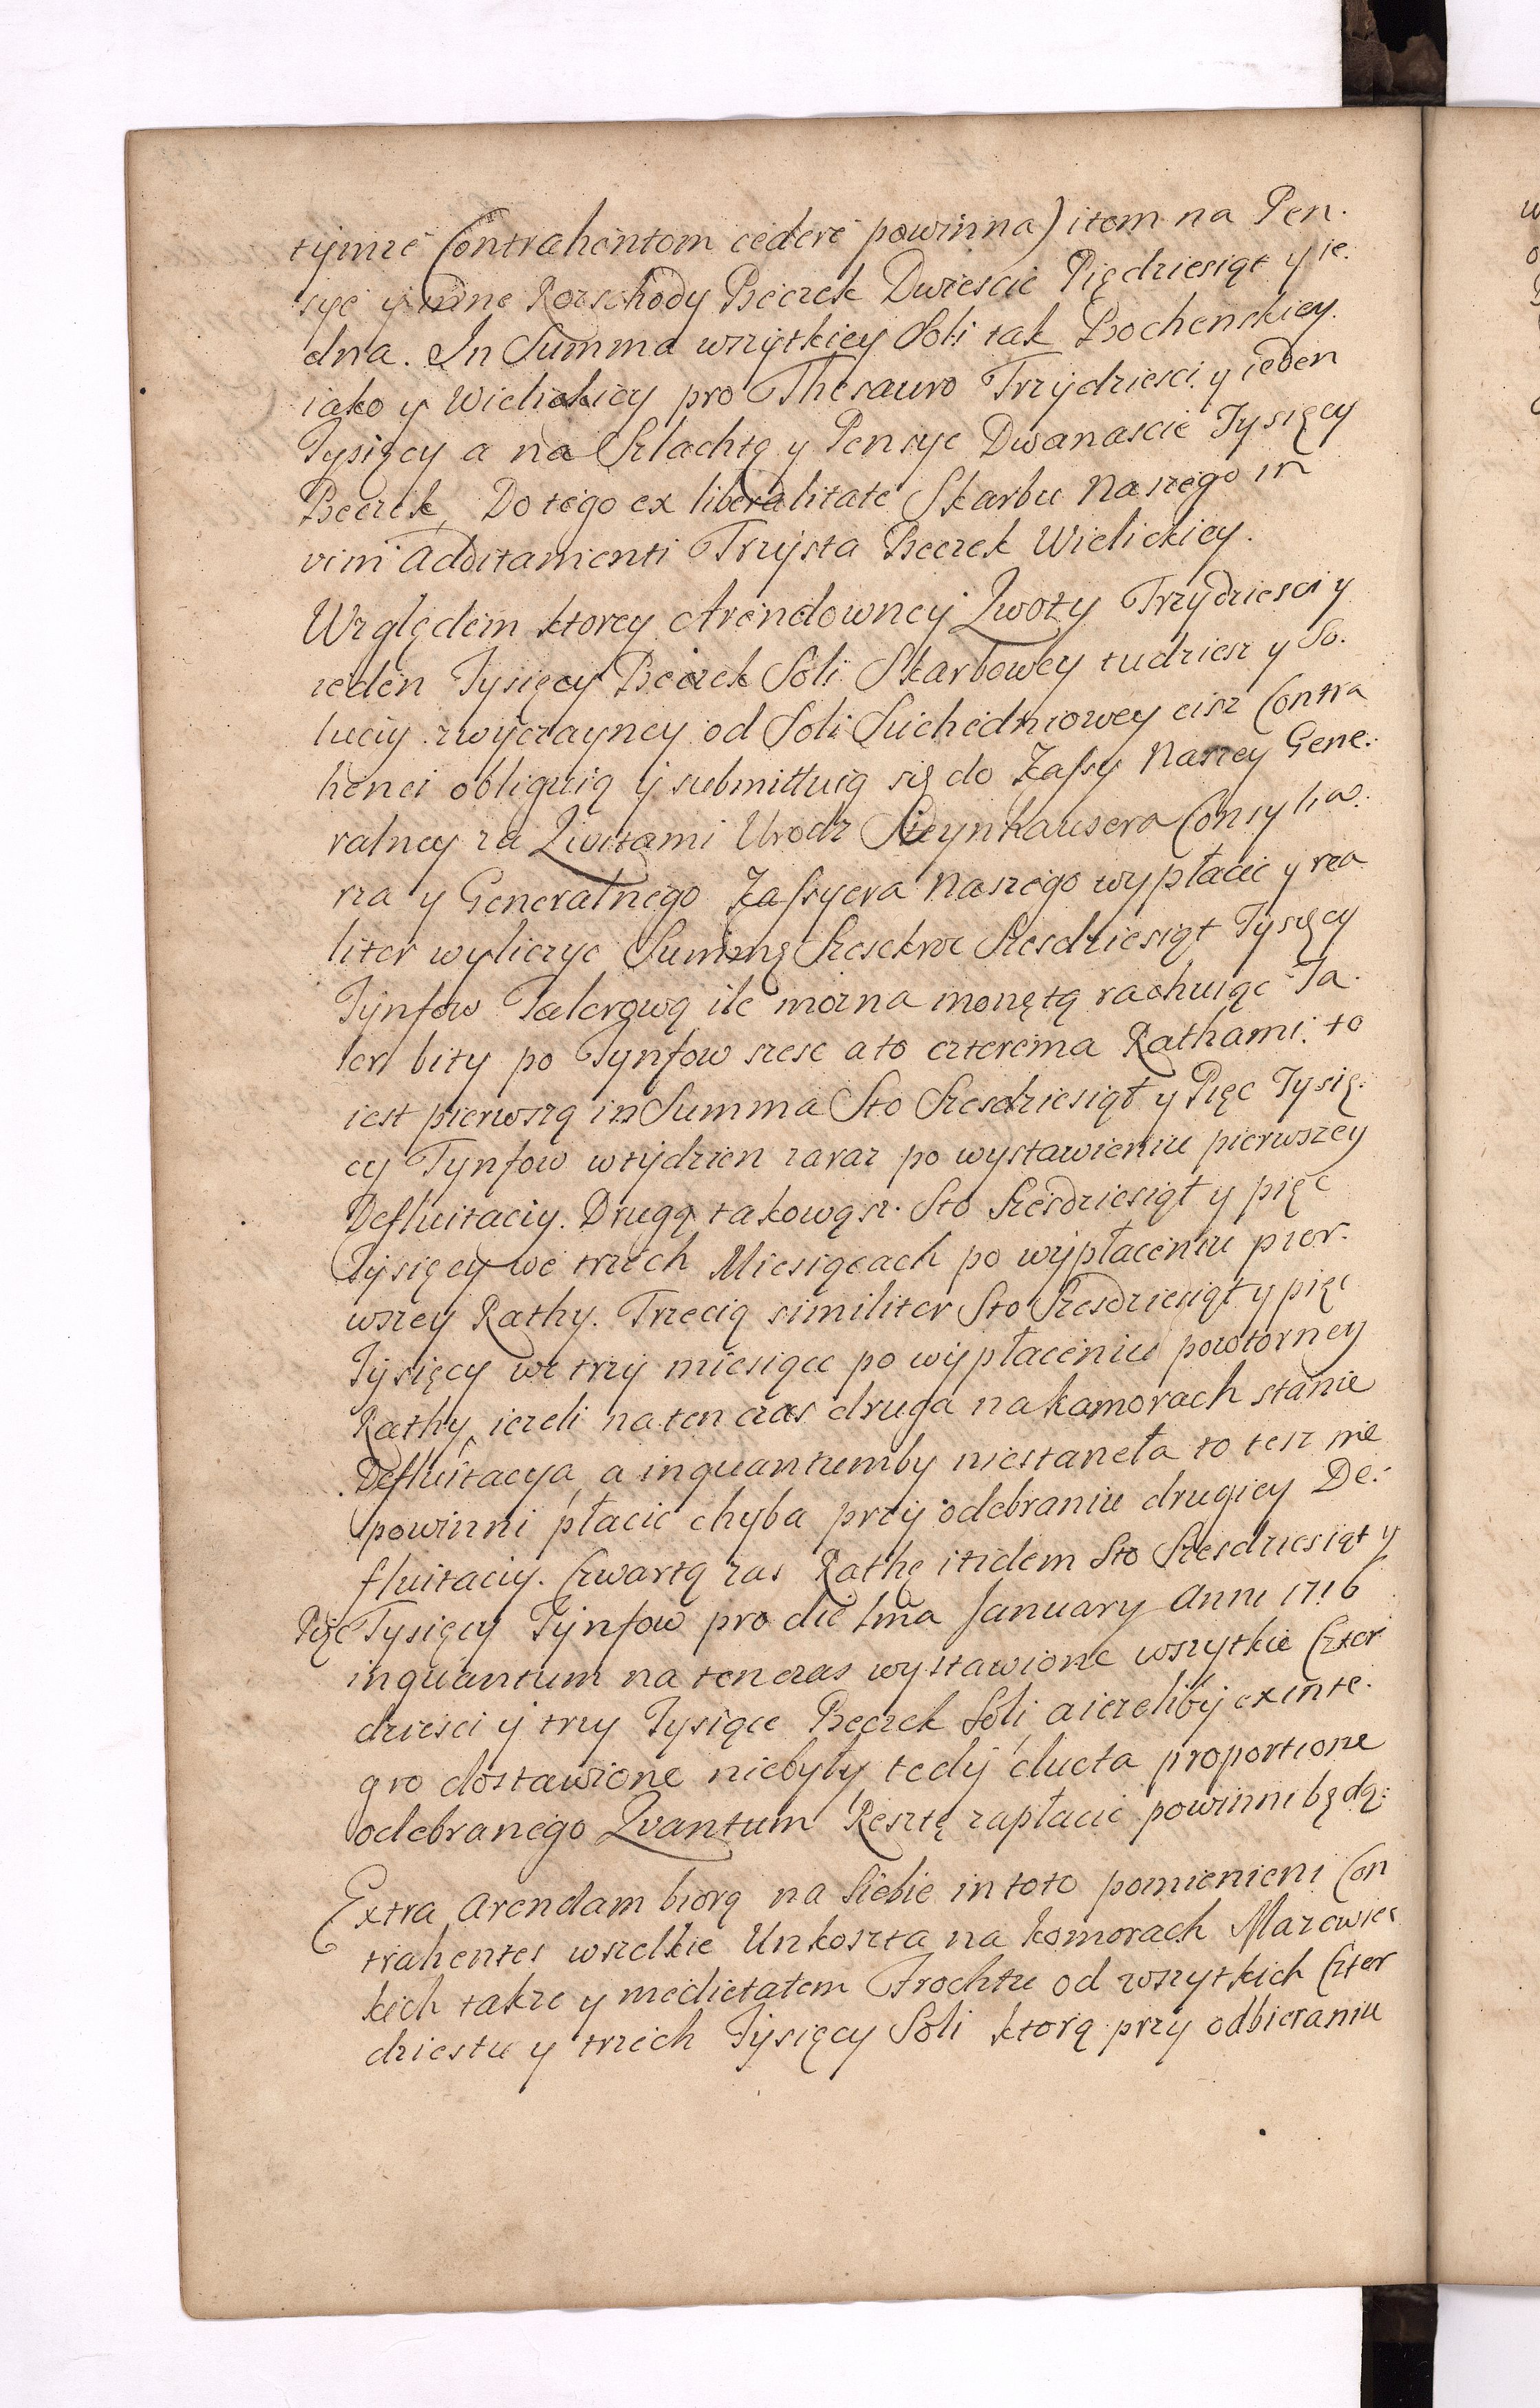 tymze Contrahentom cedere powinna) item na Pen.
sye y inne Rozschody Beczek Dwiescie Piędziesiąt y ie.
dna. In Summa wszytkiey Soli tak Bochenskiey.
iako y Wielickiey pro Thesauro Trzydziesci y ieden
Tysięcy a na Szlachtę y Pensye Dwanascie Tysięcy
Beczek, Do tego ex liberalitate Skarbu Naszego in
vim additamenti Trzysta Beczek Wielickiey.
Względem ktorey Arendowney Qwoty Trzydziesci y
ieden Tysięcy Beczek Soli Skarbowey tudziesz y So.
luciy zwyczayney od Soli Suchedniowey cisz Contra
henci obliguią y submittuią się do Kassy Naszey Gene.
ralney za Qwitami Urodz Steynhausera Consylia.
rza y Generalnego Kassyera Naszego wypłacic y rea
liter wyliczyc Summę Szesckroc Szesdziesiąt Tysięcy
Tynfow Talerową ile mozna monętą rachuiąc Ta.
ler bity po Tynfow szesc a to czterema Rathami. to
iest pierwszą in Summa Sto Szesdziesiąt y Pięc Tysię.
cy Tynfow wtydzien zaraz po wystawieniu pierwszey
Defluitaciy. Drugą takowąsz. Sto Szesdziesiąt y pięc
Tysięcy we trzech Miesiącach po wypłaceniu pier.
wszey Rathy. Trzecią similiter Sto Szesdziesiąt y pięc
Tysięcy we trzy miesiące po wypłaceniu powtorney
Rathy, iezeli na ten czas druga na kamorach stanie
Defluitacya, a inquantumby niestaneła to tesz nie
powinni płacic chyba przy odebraniu drugiey De.
fluitaciy. Czwartą zas Rathę itidem Sto Szesdziesiąt y
Pięc Tysięcy Tynfow pro die 1ma January Anni 1716
inquantum na ten czas wystawione wszytkie Czter
dziesci y trzy Tysiące Beczek Soli, a iezeliby ex inte.
gro dostawione niebyły tedy ducta proportione
odebranego Qvantum Resztę zapłacic powinni będą.
Extra Arendam biorą na Siebie in toto pomienieni Con
trahentes wszelkie Unkoszta na komorach Mazowiec
kich takze y medietatem Frochtu od wszytkich Czter
dziestu y trzech Tysięcy Soli ktorą przy odbieraniu